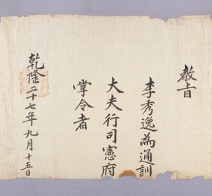 教旨
李秀逸為通訓
大夫行司憲府
掌令者
乾隆二十七年九月十五日